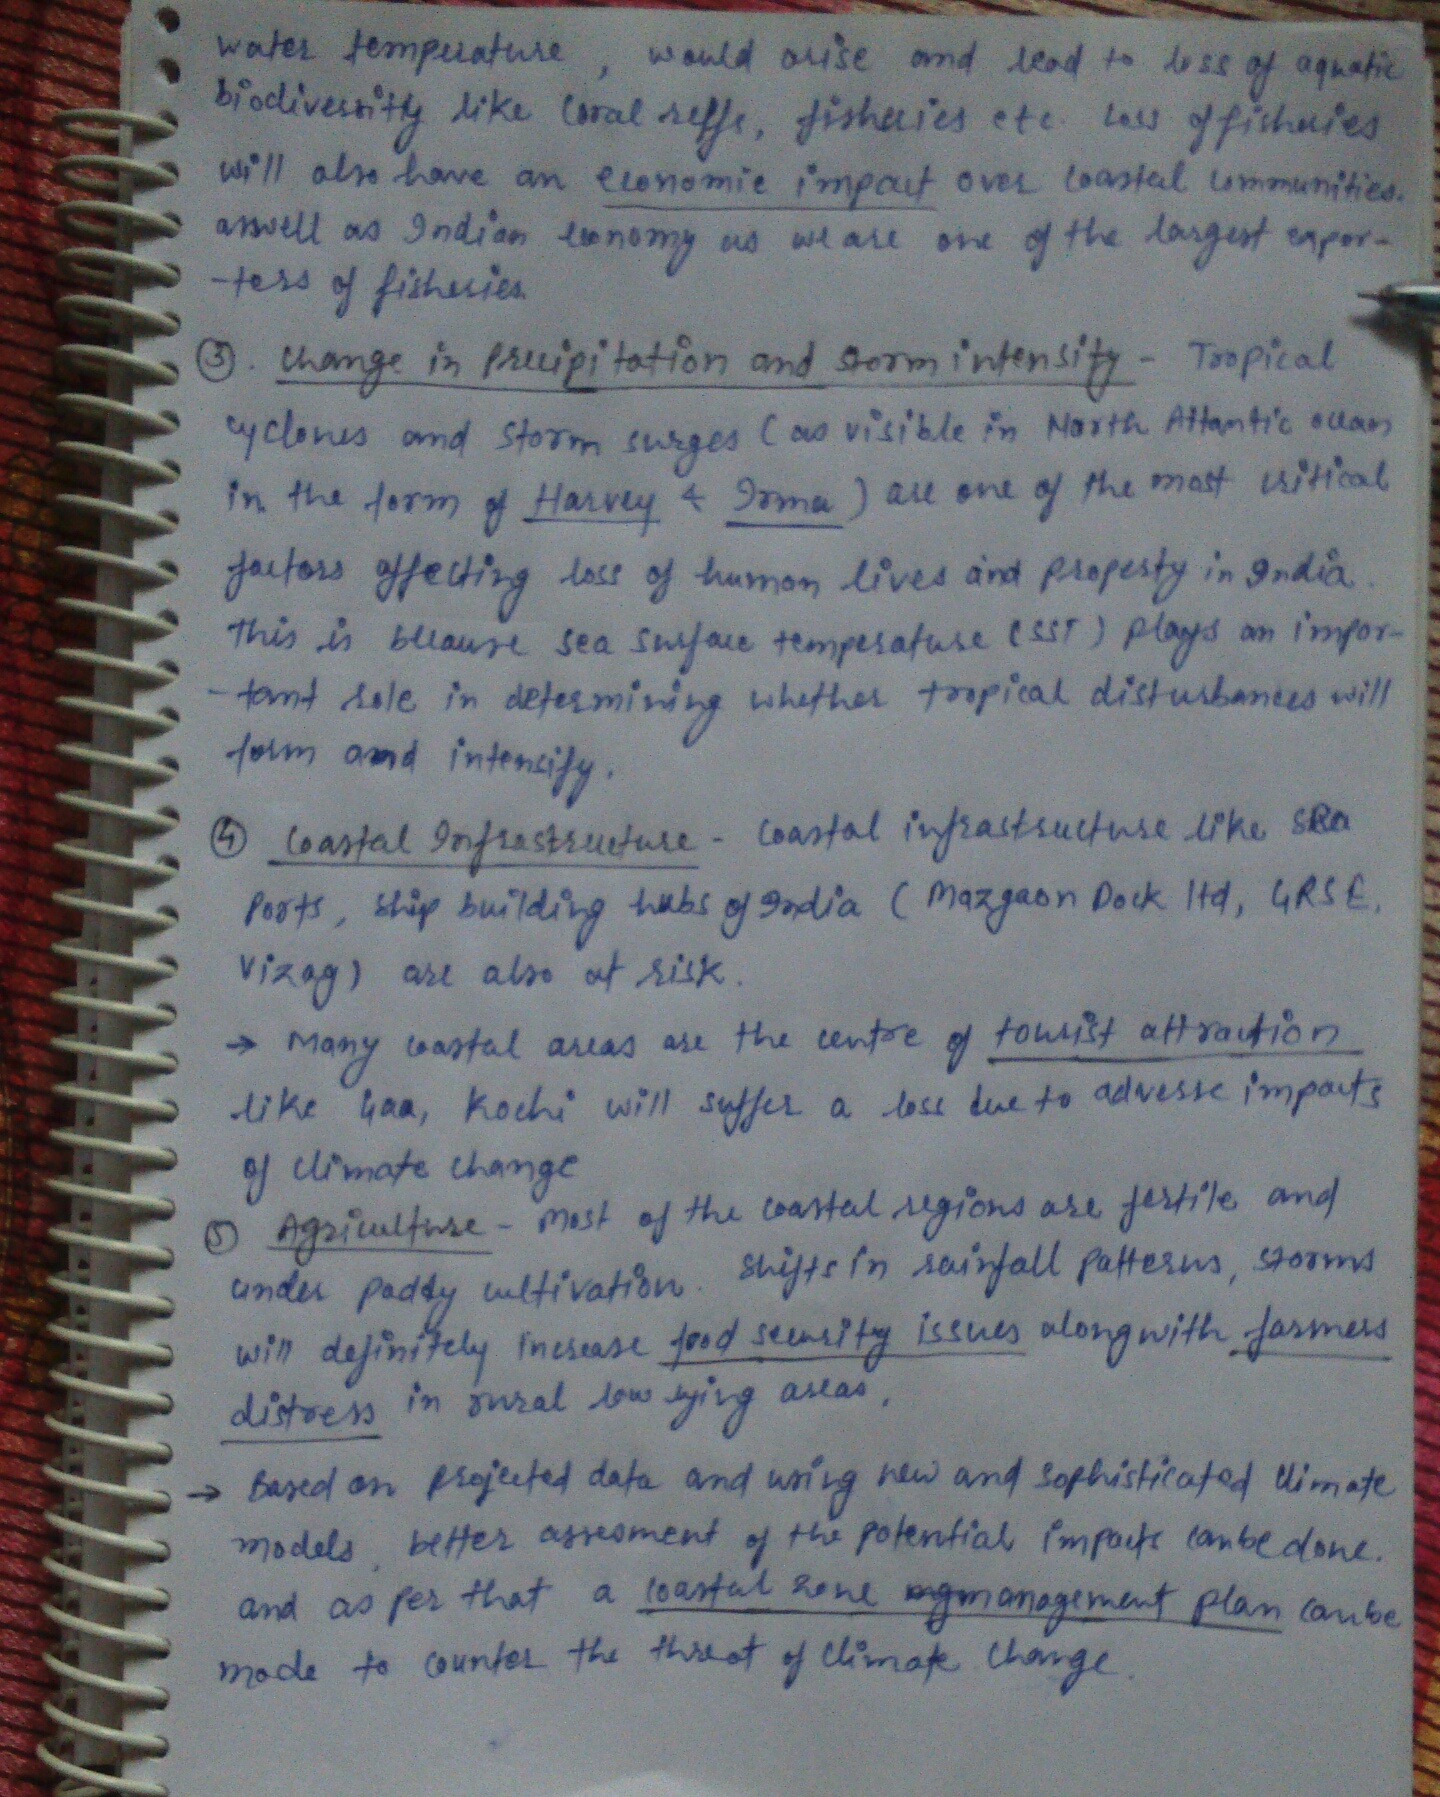 water temperature, would arise and lead to loss of aquatic
biodiversity like coral reffs, fisheries etc. Loss of fisheries
will also have an economic impact over coastal communities.
aswell as Indian economy as we are one of the largest expor-
-ters of fisheries.
③. Change in Precipitation and Storm intensity - Tropical
cyclones and storm surges (as visible in North Atlantic ocean
in the form of Harvey & Irma) are one of the most critical
factors affecting loss of human lives and property in India.
This is because sea surface temperature (SST) plays an impor-
-tant role in determining whether tropical disturbances will
form and intensify.
④ Coastal Infrastructure - Coastal infrastructure like sea
Ports, ship building hubs of India (Mazgaon Dock ltd, GRSE,
Vizag) are also at risk.
→ Many coastal areas are the centre of tourist attraction
like Goa, Kochi will suffer a loss due to adverse impacts
of climate change
⑤ Agriculture - Most of the coastal regions are fertile and
under paddy cultivation. Shifts in rainfall patterns, storms
will definitely increase food security issues alongwith farmers
distress in rural low lying areas.
→ Based on projected data and using new and sophisticated climate
models, better assesment of the potential impacts can be done.
and as per that a coastal zone management plan can be
made to counter the threat of climate change.